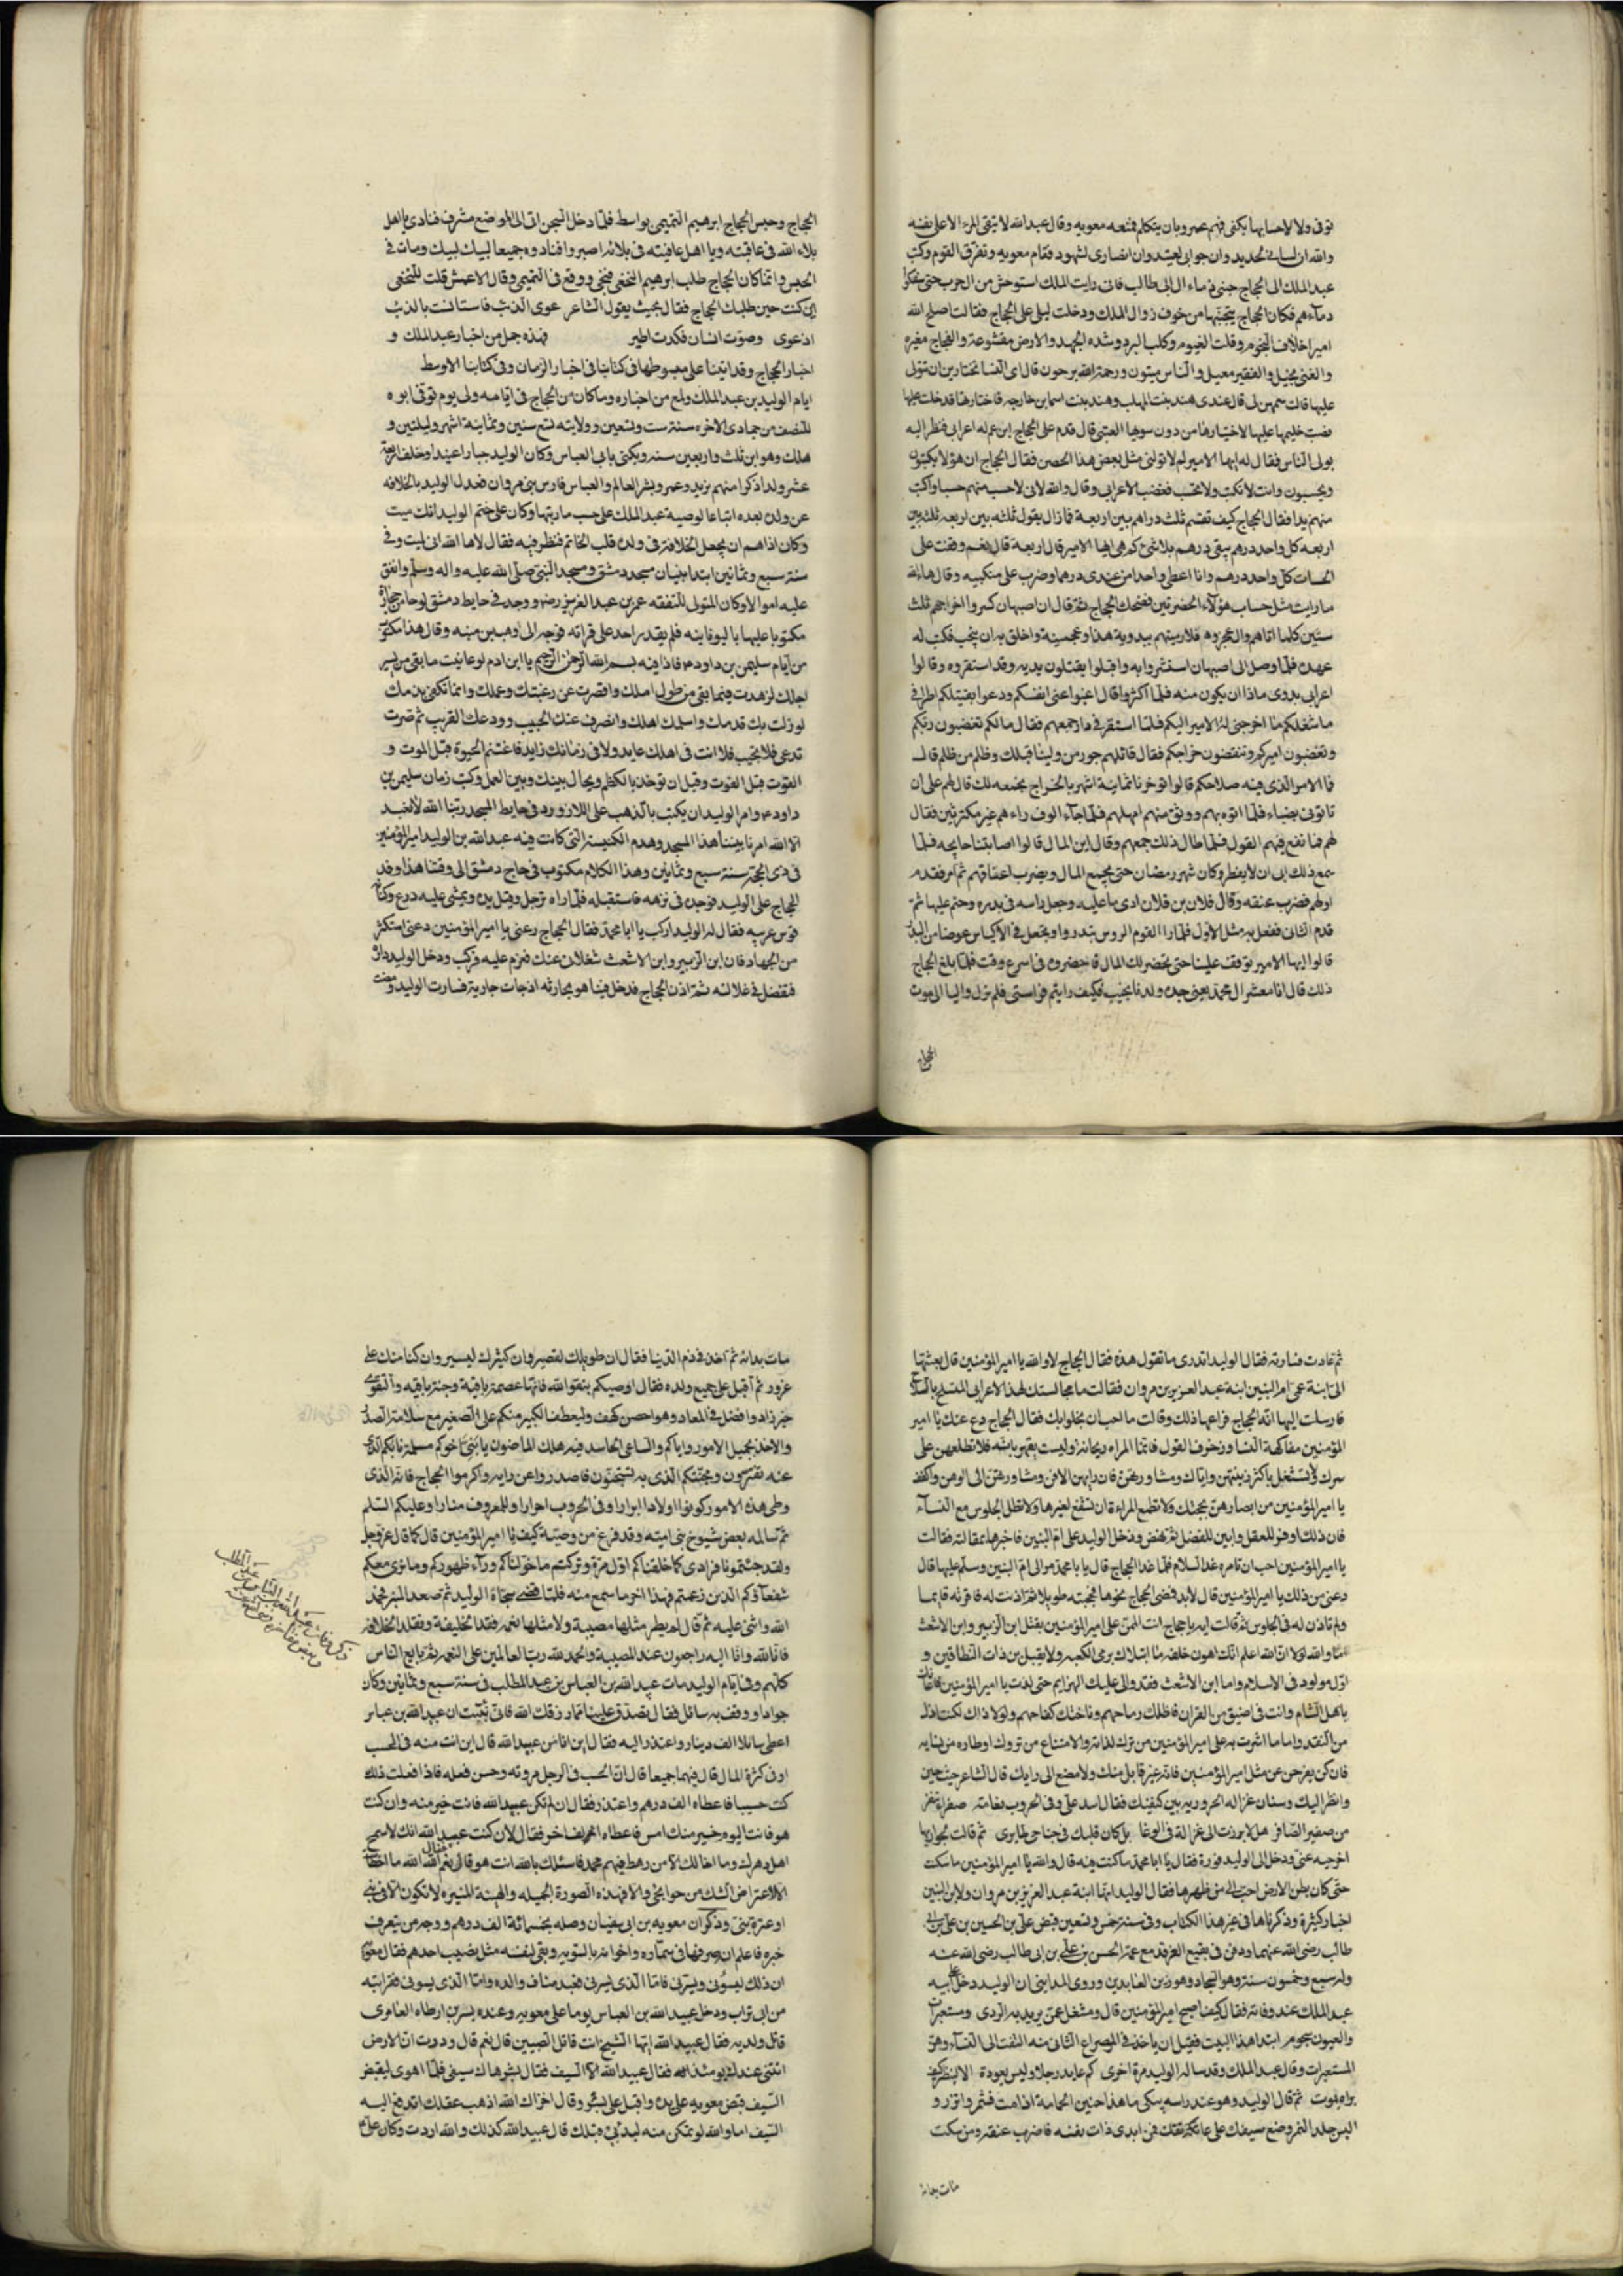 توفى ولا الاحسابها يكنى فهم عمرو بان يتكلم فمنعه معويه وقال عبدالله لا يبقى المرء الا على نفسه
والله ان لسانى لحديد وان جوابى لعتيد وان انصارى لشهود فقام معويه وتفرق القوم وكتب
عبد الملك الى الحجاج جنبنى دماء ال ابى طالب فانى رايت الملك استوحش من الحرب حتى سفكوا
دماءهم فكان الحجاج يتجنبها من خوف زوال الملك ودخلت ليلى على الحجاج فقالت اصلح الله
امير اخلاف النجوم وقلت الغيوم وكلب البرد وشده الجهد والارض مقشوعة والفجاج مغبره
والغنى مخيل والفقير معيل والناس ميتون ورحمة الله يرجون قال اى النسا تختارين ان تنزلى
عليها قالت سمهن لى قال عندى هند بنت المهلب وهند بنت اسما بن خارجه فاختارتها فدخلت عليها
فصبت حليهما عليها لاختيارها من دون سويها العتبى قال قدم على الحجاج ابن عم له اعرابى فنظر اليه
يولى الناس فقال له ايها الامير لم لا تولنى مثل بعض هذا الحصن فقال الحجاج ان هولا يكتبون
ويحسبون وانت لا تكتب ولا تحسب فغضب الاعرابى وقال والله لانى لاحسب منهم حسبا واكتب
منهم يدا فقال الحجاج كيف تقسم ثلث دراهم بين اربعة فما زال يقول ثلثه بين اربعه ثلثه بين
اربعه كل واحد درهم يبقى درهم بلا شئ كم هى ايها الامير قال اربعة قال نعم وقفت على
الحسات كل واحد درهم وانا اعطى واحدا من عندى درهما وضرب على منكبيه وقال هالله
ما رايت مثل حساب هؤلاء الحضرتين فضحك الحجاج ثم قال ان اصبهان كسروا خراجهم ثلث
سنين كلما اتاهم وال عجزوه فلارمينهم ببدوية هذا وعجمينة واخلق به ان ينجب فكتب له
عهده فلما وصل الى اصبهان استشروابه واقبلوا يقبلون يديه وقد استغروه وقالوا
اعرابى بدوى ماذا ان يكون منه فلما اكثروا قال اعينوا عنى انفسكم ودعوا تقبيلكم اطرافى
ما شغلكم منا اخرجنى له الامير اليكم فلما استقر فى داره جمعهم فقال مالكم تغضبون ربكم
وتغضبون اميركم وتنقضون خراجكم فقال قائلهم جور من ولينا قبلك وظلم من ظلم قال
فما الامر الذى فيه صلاحكم قالوا توخرنا ثمانية اشهر بالخراج نجمعه لك قال لهم على ان
تاتونى بضمناء فلما اتوه بهم ووثق منهم امهلهم فلما جاء الوف راءهم غير مكترثين فقال
لهم فما نفع فيهم القول فلما طال ذلك جمعهم وقال اين المال قالوا اصابتنا جايحه فلما
سمع ذلك الى ان لا يفطر وكان شهر رمضان حتى يجمع المال ويضرب اعناقهم ثم امر فقدم
اولهم فضرب عنقه وقال فلان بن فلان ادى ما عليه وجعل راسه فى بدره وختم عليها ثم
قدم الثانى ففعل به مثل الاول فلما راا القوم الروس يندروا ويجعل فى الاكياس عوضا من البدر
قالوا ايها الامير توقف علينا حتى نحضر لك المال فاحضروه فى اسرع وقت فلما بلغ الحجاج
ذلك قال انا معشر ال محمد يعنى جده ولدنا نجيب فكيف رايتم فراستى فلم يزل واليا الى موت
الحجاج
الحجاج وحبس الحجاج ابرهيم التميمى بواسط فلما دخل السجن اتى الى موضع مشرف فنادى يا اهل
بلاء الله فى عافيته ويا اهل عافيته فى بلائه اصبروا فنادوه جميعا لبيك لبيك ومات فى
الحبس وانما كان الحجاج طلب ابرهيم النخعى فنجى ووقع فى التميمى وقال الاعمش قلت للنخعى
اين كنت حين طلبك الحجاج فقال بحيث يقول الشاعر عوى الذئب فاستانست بالذئب
اذ عوى وصوت انسان فكدت اطير فهذه جمل من اخبار عبد الملك و
اخبار الحجاج وقد اتينا على مبسوطها فى كتابنا فى اخبار الزمان وفى كتابنا الاوسط
ايام الوليد بن عبد الملك ولمع من اخباره وما كان من الحجاج فى ايامه ولى يوم توفى ابوه
للنصف من جمادى الاخره سنة ست وتسعين وولايته تسع سنين وثمانية اشهر وليلتين و
هلك وهو ابن ثلث واربعين سنه ويكنى بابى العباس وكان الوليد جبارا عنيدا وخلف اربعة
عشر ولدا ذكرا منهم يزيد وعمر وبشر العالم والعباس فارس بنى مروان فعدل الوليد بالخلافه
عن ولده بعده اتباعا لوصية عبد الملك على حسب ما رتبها وكان على ختم الوليد انك ميت
وكان اذا هم ان يجعل الخلافة فى ولده قلب الخاتم فنظر فيه فقال لا ها الله انى لميت وفى
سنة سبع وثمانين ابتدا ببنيان مسجد دمشق ومسجد النبى صلى الله عليه واله وسلم وانفق
عليه اموالا وكان المتولى للنفقه عمر بن عبد العزيز رضه ووجد فى حايط دمشق لوحا من حجارة
مكتوبا عليها باليونانيه فلم يقدر احد على قراته فوجه الى وهب بن منبه وقال هذا مكتوب
من ايام سليمن بن داود عم فاذا فيه بسم الله الرحمن الرحيم يا ابن ادم لو عاينت ما بقى من يسير
اجلك لزهدت فيما بقى من طول املك واقصرت عن رغبتك وعملك وانما تكفى ندمك
لو زلت بك قدمك واسلمك اهلك وانصرف عنك الحبيب وودعك القريب ثم صرت
تدعى فلا تجيب فلا انت فى اهلك عايد ولا فى زمانك زايد فاغتنم الحيوة قبل الموت و
القوت قبل الفوت وقبل ان توخذ بالكظم ويحال بينك وبين العمل وكتب زمان سليمن بن
داود عم وامر الوليد ان يكتب بالذهب على اللازورد فى حايط المسجد ربنا الله لا نعبد
الا الله امرنا ببيننا هذا المسجد وهدم الكنيسة التى كانت فيه عبد الله بن الوليد امير المؤمنين
فى ذى الحجة سنة سبع وثمانين وهذا الكلام مكتوب فى حاج دمشق الى وقتنا هذا وفد
الحجاج على الوليد فوجده فى نزهه فاستقبله فلما راه ترجل وقبل يده ويمشى عليه درع وكنانه
قوس عربيه فقال له الوليد اركب يا ابا محمد فقال الحجاج دعنى يا امير المؤمنين دعنى استكثر
من الجهاد فان ابن الزبير وابن الاشعث شغلانى عنك فعزم عليه فركب ودخل الوليد داره
فتفضل فى غلالته ثم اذن للحجاج فدخل فبينا هو يحادثه اذ جات جارية فسارت الوليد ومضت
ثم عادت فسارته فقال الوليد اتدرى ما تقول هذه فقال الحجاج لا والله يا امير المؤمنين قال بعثتها
الى ابنة عمى ام البنين ابنة عبد العزيز بن مروان فقالت ما مجالستك لهذا الاعرابى المتسلح بالسلاح
فارسلت اليها انه الحجاج فراعها ذلك وقالت ما احب ان يخلو بك فقال الحجاج دع عنك يا امير
المؤمنين مفاكهة النسا وزخرف القول فانما المراه ريحانة وليست بقهرمانه فلا تطلعهن على
سرك ولا تستعمل باكثر زينتهن واياك ومشاورتهن فان رايهن الافن ومشاورتهن الى الوهن واكفف
يا امير المؤمنين من ابصارهن بحجبك ولا تطمع المراءة ان تشفع لغيرها ولا تطل الجلوس مع النساء
فان ذلك اوفر للعقل وابين للفضل ثم نهض ودخل الوليد على ام البنين فاخبرها بمقالته فقالت
يا امير المؤمنين احب ان تامره غدا لسلام فلما غدا الحجاج قال يا با محمد سر الى ام البنين وسلم عليها قال
دعنى من ذلك يا امير المؤمنين قال لابد فمضى الحجاج نحوها فحجبته طويلا ثم اذنت له فاقرته قائما
ولم تاذن له فى الجلوس ثم قالت ايه يا حجاج انت الممتن على امير المؤمنين بقتل ابن الزبير وابن الاشعث
اما والله لولا ان الله اعلم انك اهون خلقه ما ابتلاك برمى الكعبه ولا بقتل بن ذات النطاقين و
اول مولود فى الاسلام واما ابن الاشعث فقد والى عليك الهزايم حتى لذت يا امير المؤمنين فاغاثك
باهل الشام وانت فى اضيق من القران فاظلك رماحهم وناخك كفاحهم ولولا ذاك لكنت اذل
من النقد واما ما اشرت به على امير المؤمنين من ترك لذاته والامتناع من تروك اوطاره من نسايه
فان كن يفرجن عن مثل امير المؤمنين فانه غير قابل منك ولا مصغ الى رايك قال الشاعر حيث حين
وانظر اليك وسنان غزاله الحروريه بين كتفيك فقال اسد على وفى الحروب نعامة صفراء تنفر
من صفير الصافر هل لا برزت الى غزالة فى الوغا بل كان قلبك فى جناحى طاير ثم قالت لجواريها
اخرجيه عنى ودخل الى الوليد فورة فقال يا ابا محمد ما كنت فيه قال والله يا امير المؤمنين ما سكت
حتى كان بطن الارض احب الى من ظهرها فقال الوليد انها ابنة عبد العزيز بن مروان ولام البنين
اخبار كثيرة وذكرناها فى غير هذا الكتاب وفى سنة خمس وتسعين قبض على بن الحسين بن على بن ابى
طالب رضى الله عنهما ودفن فى بقيع الغرقد مع عمه الحسن بن على بن ابى طالب رضى الله عنه
وله سبع وخمسون سنة وهو السجاد وهو زين العابدين وروى المداينى ان الوليد دخل على ابيه
عبد الملك عند وفاته فقال كيف اصبح امير المؤمنين قال ومشتغل عنى يريد به الردى ومستعبرات
والعيون سجوم ابتدا هذا البيت فقيل ان ياخذ فى المصراع الثانى منه التفت الى النساء وهن
المستعبرات وقال عبد الملك وقد ساله الوليد مرة اخرى كم عايد رجلا وليس يعودة الا لينظر كيف
يراه يموت ثم قال الوليد وهو عند راسه يبكى ما هذا حنين الحمامة اذا مت فشمر واتزر و
البس جلد النمر وضع سيفك على عاتقك فمن ابدى ذات نفسه فاضرب عنقه ومن سكت
مات بدائه
مات بدائه ثم اخذ فى ذم الدنيا فقال ان طويلك لقصير وان كثيرك ليسير وان كنا منك على
غرور ثم اقبل على جميع ولده فقال اوصيكم بتقوا الله فانها عصمة باقية وجنة باقيه والتقوى
خير زاد وافضل فى المعاد وهو احصن كهف وليعطف الكبير منكم على الصغير مع سلامة الصدر
والاخذ بجميل الامور واياكم والساعى الحاسد فبه هلك الماضون يا بنى اخوكم مسلمة نابكم الذى
عنه تفترون ومجنكم الذى به تستجنون فاصدروا عن رايه واكرموا الحجاج فانه الذى
وطى هذه الامور كونوا اولادا ابرارا وفى الحروب احرارا وللمعروف منارا وعليكم السلم
ثم ساله بعض شيوخ بنى اميه وقد فرغ من وصيته كيف يا امير المؤمنين قال كما قال عز وجل
ولقد جئتمونا فرادى كما خلقناكم اول مرة وتركتم ما خولناكم وراء ظهوركم وما نرى معكم
شفعاؤكم الذين زعمتم فهذا اخر ما سمع منه فلما قضى سجاه الوليد ثم صعد المنبر فحمد
الله واثنى عليه ثم قال لم يطر مثلها مصيبة ولا مثلها نعم فقد الخليفة وتقلد الخلافه
فانا لله وانا اليه راجعون عند المصيبة والحمد لله رب العالمين على النعم ثم بايع الناس
كلهم وفى ايام الوليد مات عبيد الله بن العباس بن عبد المطلب فى سنة سبع وثمانين وكان
جوادا ووقف به سائل فقال تصدق علينا مما رزقك الله فانى نبئت ان عبيد الله بن عباس
اعطى سائلا الف دينار واعتذر اليه فقال اين انا من عبيد الله قال اين انت منه فى الحسب
او فى كثرة المال قال فيهما جميعا قال ان الحسب فى الرجل مروته وحسن فعله فاذا فعلت ذلك
كنت حسيبا فاعطاه الف درهم واعتذر فقال ان لم تكن عبيد الله فانت خير منه وان كنت
هو فانت اليوم خير منك امس فاعطاه الفا اخر فقال لان كنت عبيد الله انك لاسمح
اهل دهرك وما اخالك الا من رهط فيهم محمد فاسئلك بالله انت هو قال نعم فقال الله الله ما اخطات
الا لاعتراض الشك من جوانحى والا فهذه الصورة الجميله والهيئة المنيره لا تكون الا فى نبى
او عترة نبى وذكر ان معويه بن ابى سفيان وصله بخمسمائة الف درهم ووجه من يتعرف
خبره فاعلم ان صرفها فى سماره واخوانه بالسويه وبقى لنفسه مثل نصيب احدهم فقال معويه
ان ذلك ليسؤنى ويسرنى فاما الذى يسرنى فعبد مناف والده واما الذى يسوئنى فقرابته
من ابى تراب ودخل عبيد الله بن العباس يوما على معويه وعنده بسر بن ارطاه العامرى
قاتل ولديه فقال عبيد الله ايها الشيخ انت قاتل الصبيين قال نعم قال وددت ان الارض
انبتنى عندك يومئذ فقال عبيد الله الا السيف فقال بسر هاك سيفى فلما اهوى ليقبض
السيف قبض معويه على يده واقبل على بسر وقال اخزاك الله اذهب عقلك اتدفع اليه
السيف اما والله لو تمكن منه لبدئ بى قبلك قال عبيد الله كذلك والله اردت وكان على